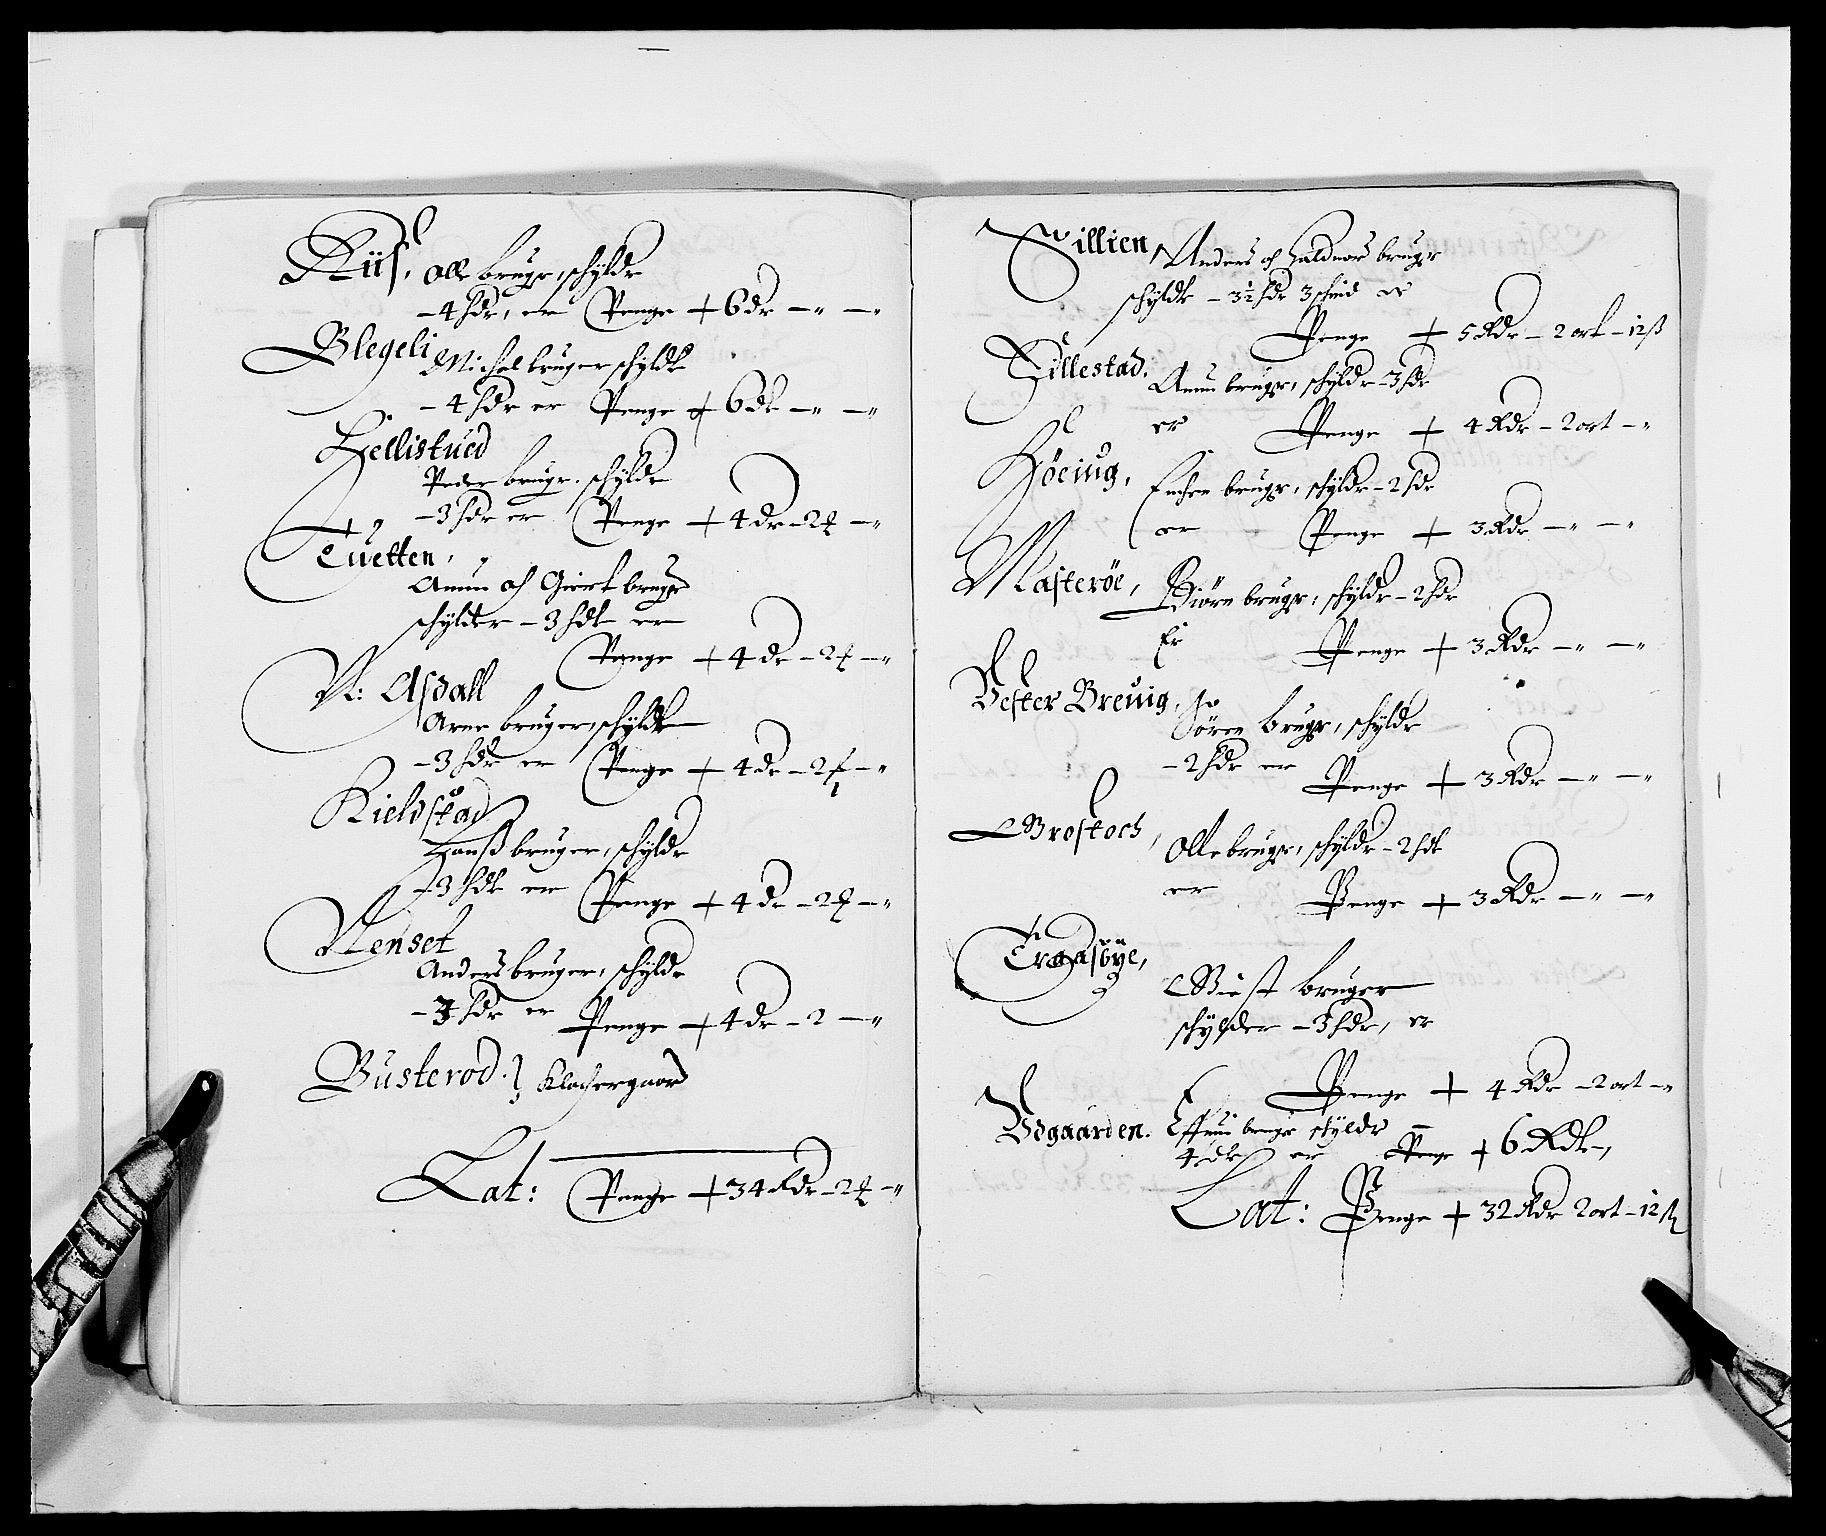 Riis, Olle bruger, schylder
- 4 hdr, er Penge + 6 dr - " - "
Blegeli Michel bruger schylder
- 4 hdr er Penge + 6 dr - " - "
Hellistued
Peder bruger. schylder
- 3 hdr er Penge + 4 dr - 2 - "
Tuetten,
Amun och bruger
schylder - 3 hdr er
Penge + 4 dr - 2 - "
N: Assdall
Arne bruger, schylder
- 3 hdr er Penge + 4 dr - 2 - "
Kieldstad
Hanss bruger, schylder
- 3 hdr er Penge + 4 dr - 2 - "
Nenset
Anders bruger, schylder
- 3 hdr er Penge + 4 dr - 2 - "
Busterod. Klochergaard
Lat: Penge + 34 Rdr - 2 - "
Sillien Anders och Halduor bruger
schylder - 3½ hdr 3 schind er
Penge + 5 Rdr - 2 ort - 12 ß
Sillestad. Amun bruger, schylder - 3 hdr
er Penge + 4 Rdr - 2 ort - "
Höeiug, bruger, schylder - 2 hdr
er Penge + 3 Rdr - " - "
Masteröe, Biörn bruger, schylder - 2 hdr
Er Penge + 3 Rdr - " - "
Vester Breuig,
Sören bruger, schylder
- 2 hdr er Penge + 3 Rdr - " - "
Brostoch, Olle bruger, schylder - 2 hdr
er Penge + 3 Rdr - " - "
Traasöye,
bruger
schylder - 3 hdr, er
Penge + 4 Rdr - 2 ort - "
Vdgaarden. bruger schylder
4 hdr er Penge + 6 Rdr -,
Lat: Penge + 32 Rdr 2 ort - 12 ß